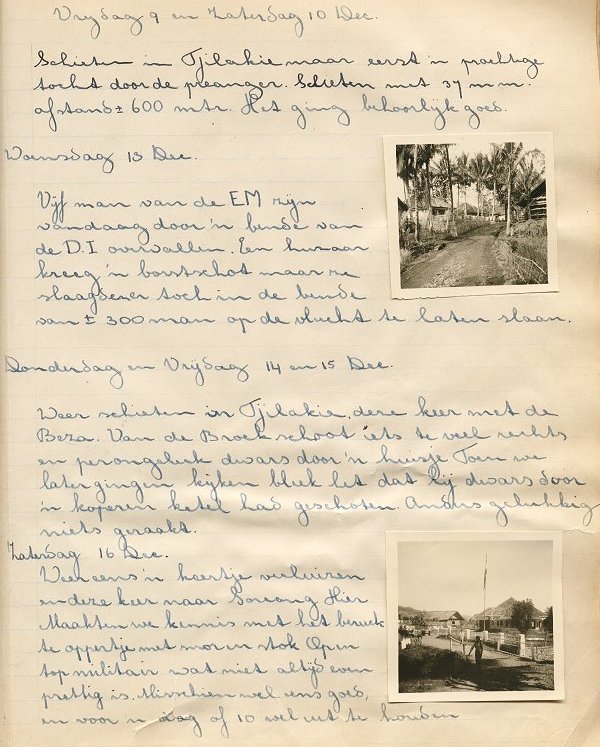 Vrijdag 9 en Zaterdag 10 Dec.
Schieten in Tjilakie maar eerst 'n prachtige
tocht door de preanger. Schieten met 37 m.m.
afstand ± 600 mtr. Het ging behoorlijk goed.
Woensdag 13 Dec.
Vijf man van de EM zijn
vandaag door 'n bende van
de D.I overvallen. Een huzaar
kreeg 'n borstschot maar ze
slaagden er toch in de bende
van ± 300 man op de vlucht te laten slaan.
Donderdag en Vrijdag 14 en 15 Dec.
Weer schieten in Tjilakie, deze keer met de
Beza. Van de Broek schoot iets te veel rechts
en perongeluk dwars door 'n huisje Toen we
later gingen kijken bleek het dat hij dwars door
'n koperen ketel had geschoten. Anders gelukkig
niets geraakt.
Zaterdag 16 Dec.
Weer eens 'n keertje verhuizen
en deze keer naar Soreang Hier
Maakten we kennis met het
te oppertje met mooi stok Open
top militair wat niet altijd even
prettig is. Misschien wel eens goed,
en voor 'n dag of 10 wel uit te houden